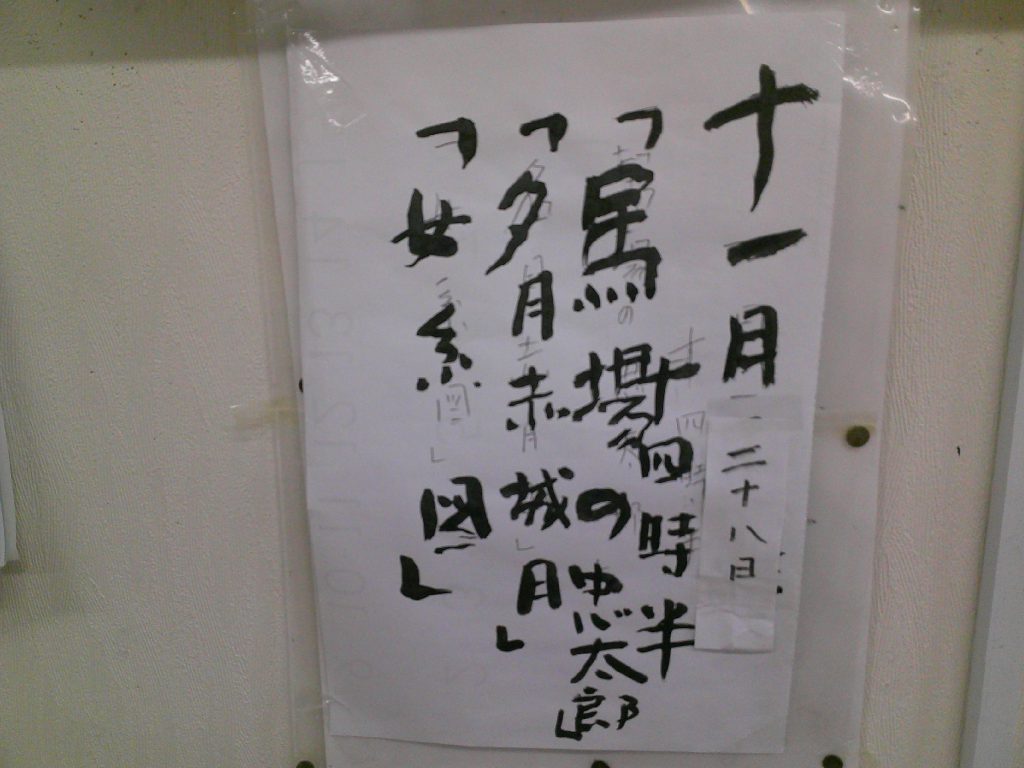 十一月二十八日
十四時半
「馬場の忠太郎」
「夕月赤城月」
「女系図」